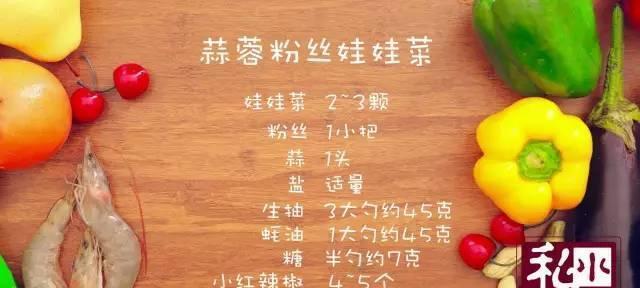 蒜蓉粉丝娃娃菜
娃娃菜 2~3颗
粉丝 1小把
蒜 1头
盐 适量
生抽 3大勺约45克
蚝油 1大勺约45克
糖 半勺约7克
小红辣椒 4~5个